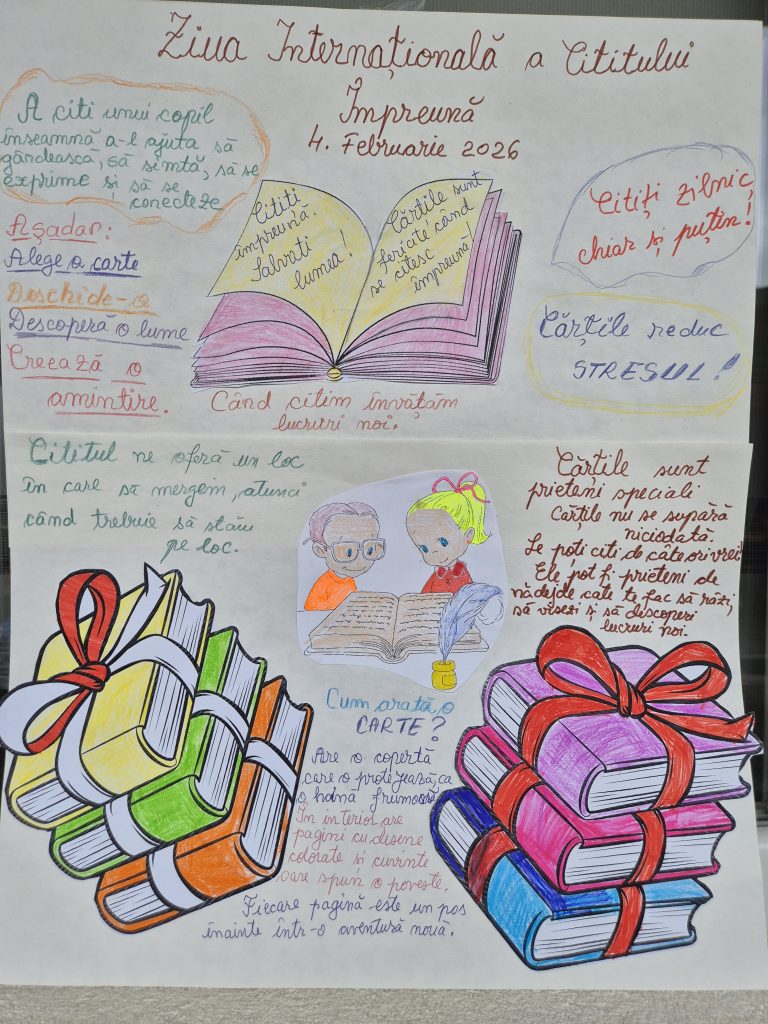 Ziua Internațională a Cititului
Împreună
4. Februarie 2026
A citi unui copil
înseamnă a-l ajuta să
gândească, să simtă, să se
exprime și să se
conecteze
Așadar:
Alege o carte
Deschide-o
Descoperă o lume
Creează o
amintire.
Cititi
împreună.
Salvati
lumea!
Cărțile sunt
fericite când
se citesc
împreună!
Citiți zilnic,
chiar și puțin!
Cărțile reduc
STRESUL!
Când citim învățăm
lucruri noi.
Cititul ne oferă un loc
în care să mergem, atunci
când trebuie să stăm
pe loc.
Cărțile sunt
prieteni speciali
Cărțile nu se supără
niciodată.
Le poți citi de câte ori vrei!
Ele pot fi prieteni de
nădejde care te fac să râzi,
să visezi și să descoperi
lucruri noi.
Cum arată o
CARTE?
Are o copertă
care o protejează, ca
o haină frumoasă
În interior are
pagini cu desene
colorate si cuvinte
care spun o poveste.
Fiecare pagină este un pas
înainte într-o aventură nouă.